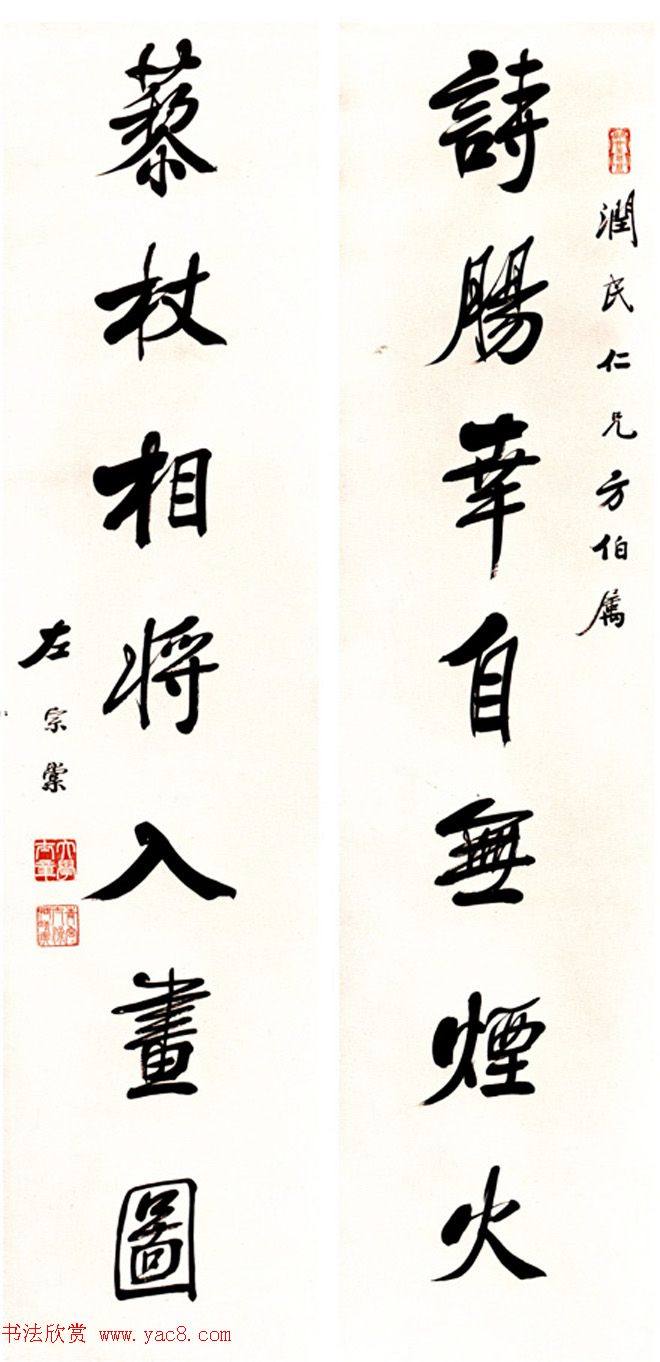 潤民仁兄方伯属
詩腸幸自無煙火
藜杖相将入畫圖
左宗棠
大學士章
书法欣赏 www.yac8.com